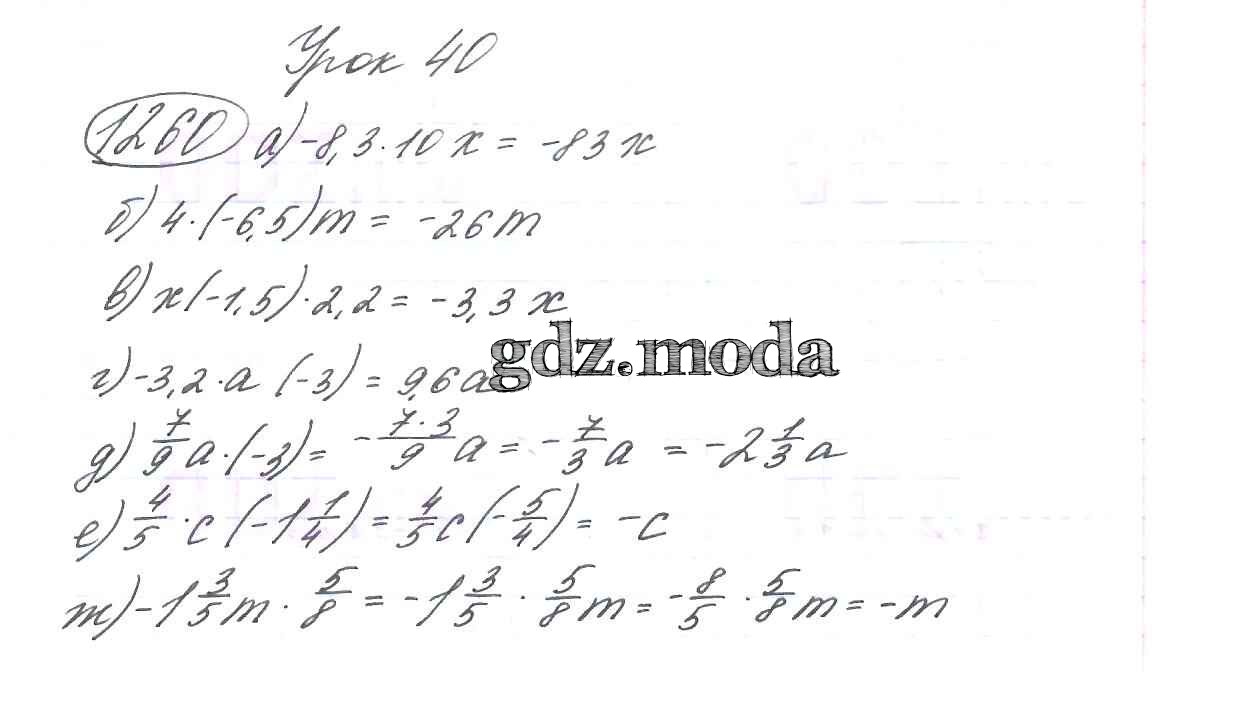 Урок 40
1260 а) -8,3·10x = -83x
б) 4·(-6,5)m = -26m
в) x(-1,5)·2,2 = -3,3x
gdz.moda
г) -3,2·a (-3) = 9,6a
д) 7/9 a·(-3) = -7·3/9 a = -7/3 a = -2 1/3 a
е) 4/5 ·c (-1 1/4) = 4/5 c (-5/4) = -c
ж) -1 3/5 m · 5/8 = -1 3/5 · 5/8 m = -8/5 · 5/8 m = -m